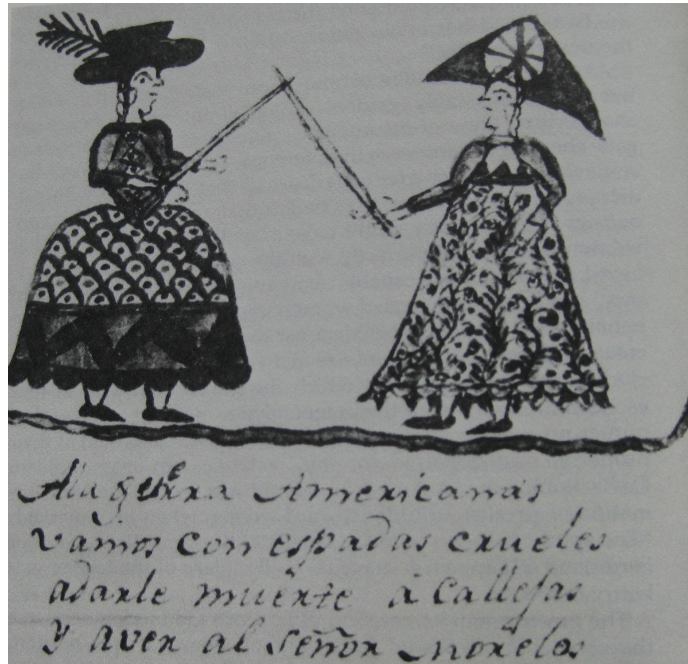 A la guerra Americanas
vamos con espadas crueles
a darle muerte à Callejas
y aver al señor Morelos